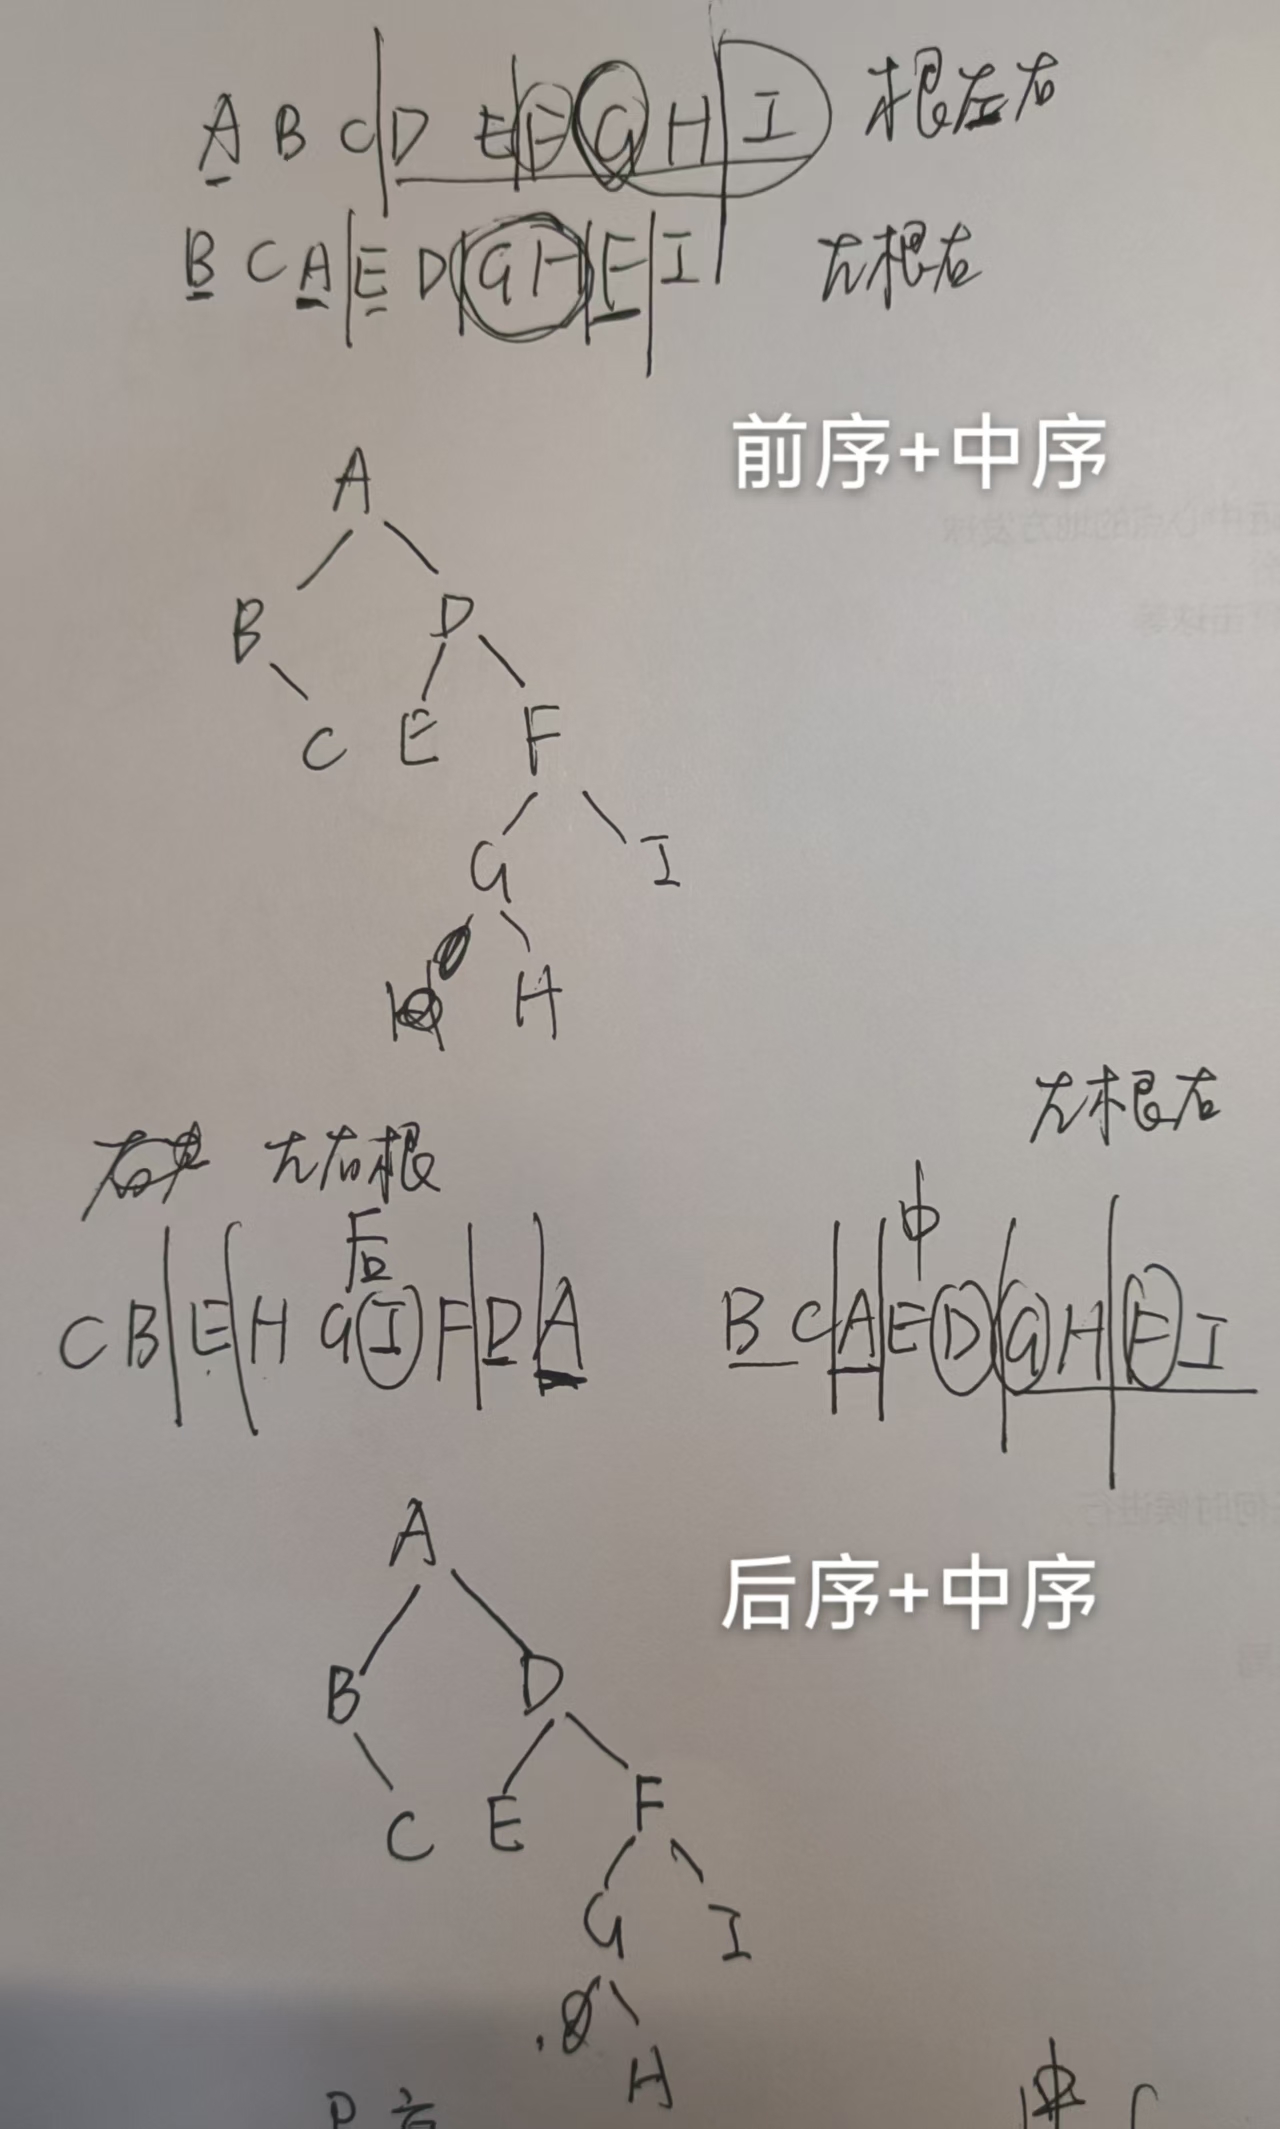 A B C D E F G H I 根左右
B C A E D G H F I 左根右
前序+中序
A
B D
C E F
G I
H
左根右
左右根
后 中
C B E H G I F D A B C A E D G H F I
A
后序+中序
B D
C E F
G I
H
中